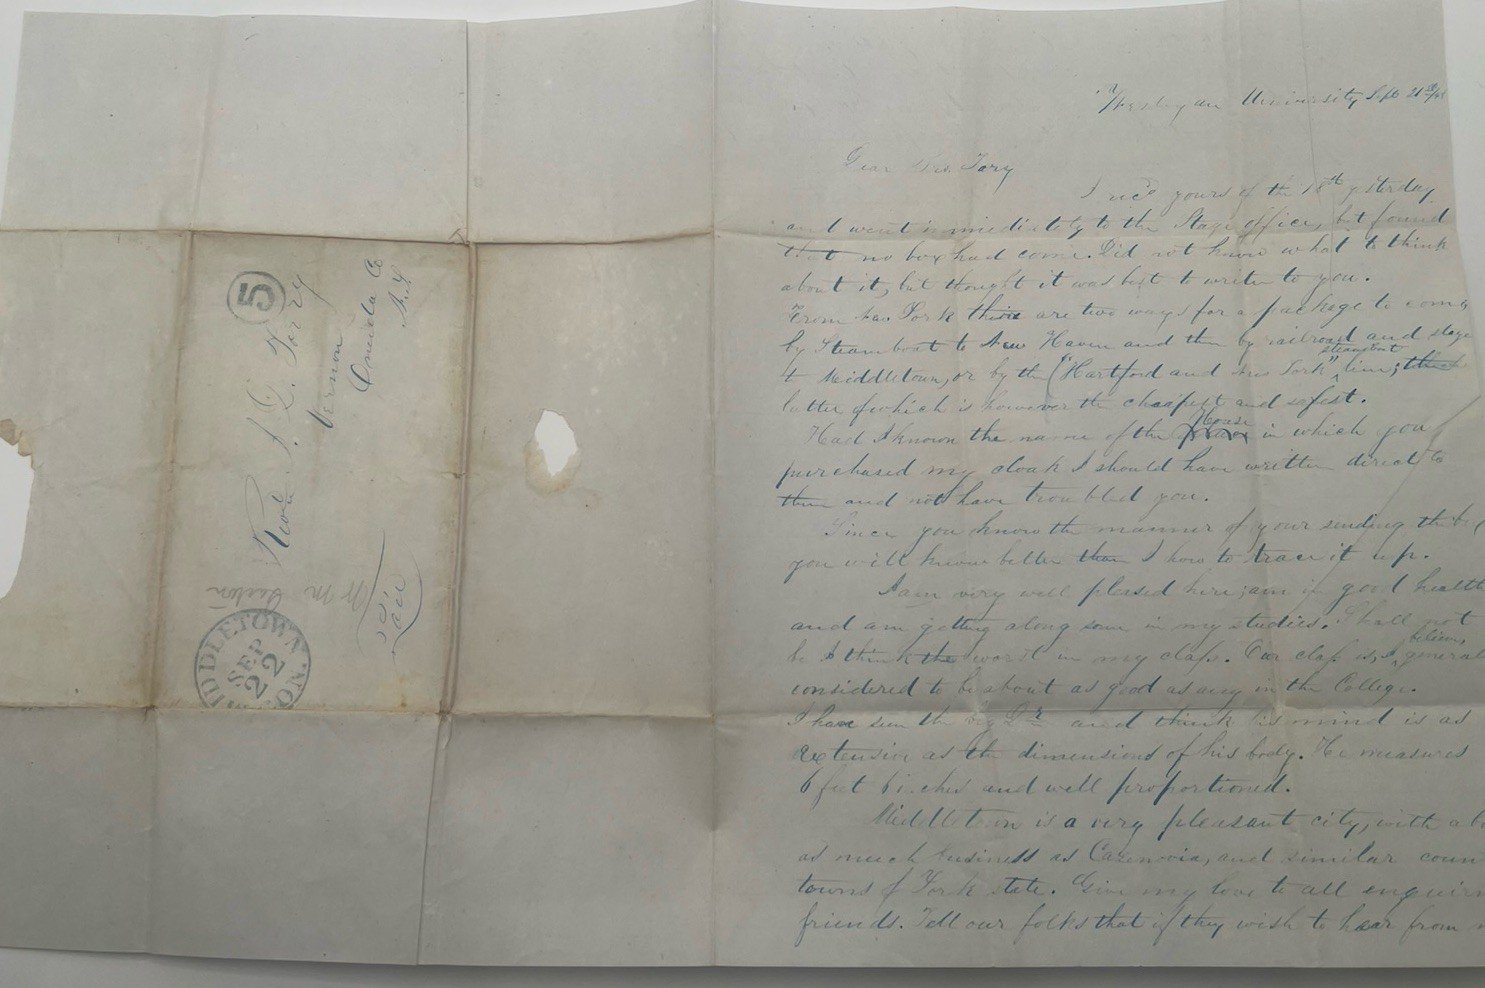 5
Revd. J. D. Torry
Vernon
Oneida Co
N.Y.
MIDDLETOWN
SEP
22
Wesleyan University Sept 21st
Dear Bro. Torry
I recd yours of the 18th yesterday
and went immediately to the Stage office, but found
that no box had come. Did not know what to think
about it, but thought it was best to write to you.
From New York there are two ways for a package to come,
by Steam boat to New Haven and then by railroad and stage
to Middletown, or by the "Hartford and New York" steamboat line; the
latter of which is however the cheapest and safest.
Had I known the name of the House in which you
purchased my cloak I should have written direct to
them and not have troubled you.
Since you know the manner of your sending the box
you will know better than I how to trace it up.
I am very well pleased here; am in good health
and am getting along some in my studies. Shall not
be I think the worst in my class. Our class is, I believe, general
considered to be about as good as any in the College.
I have seen the big Dr. and think his mind is as
extensive as the dimensions of his body. He measures
6 feet 6 inches and well proportioned.
Middletown is a very pleasant city, with abo
as much business as Cazenovia, and similar coun
towns of York state. Give my love to all enquirin
friends. Tell our folks that if they wish to hear from m